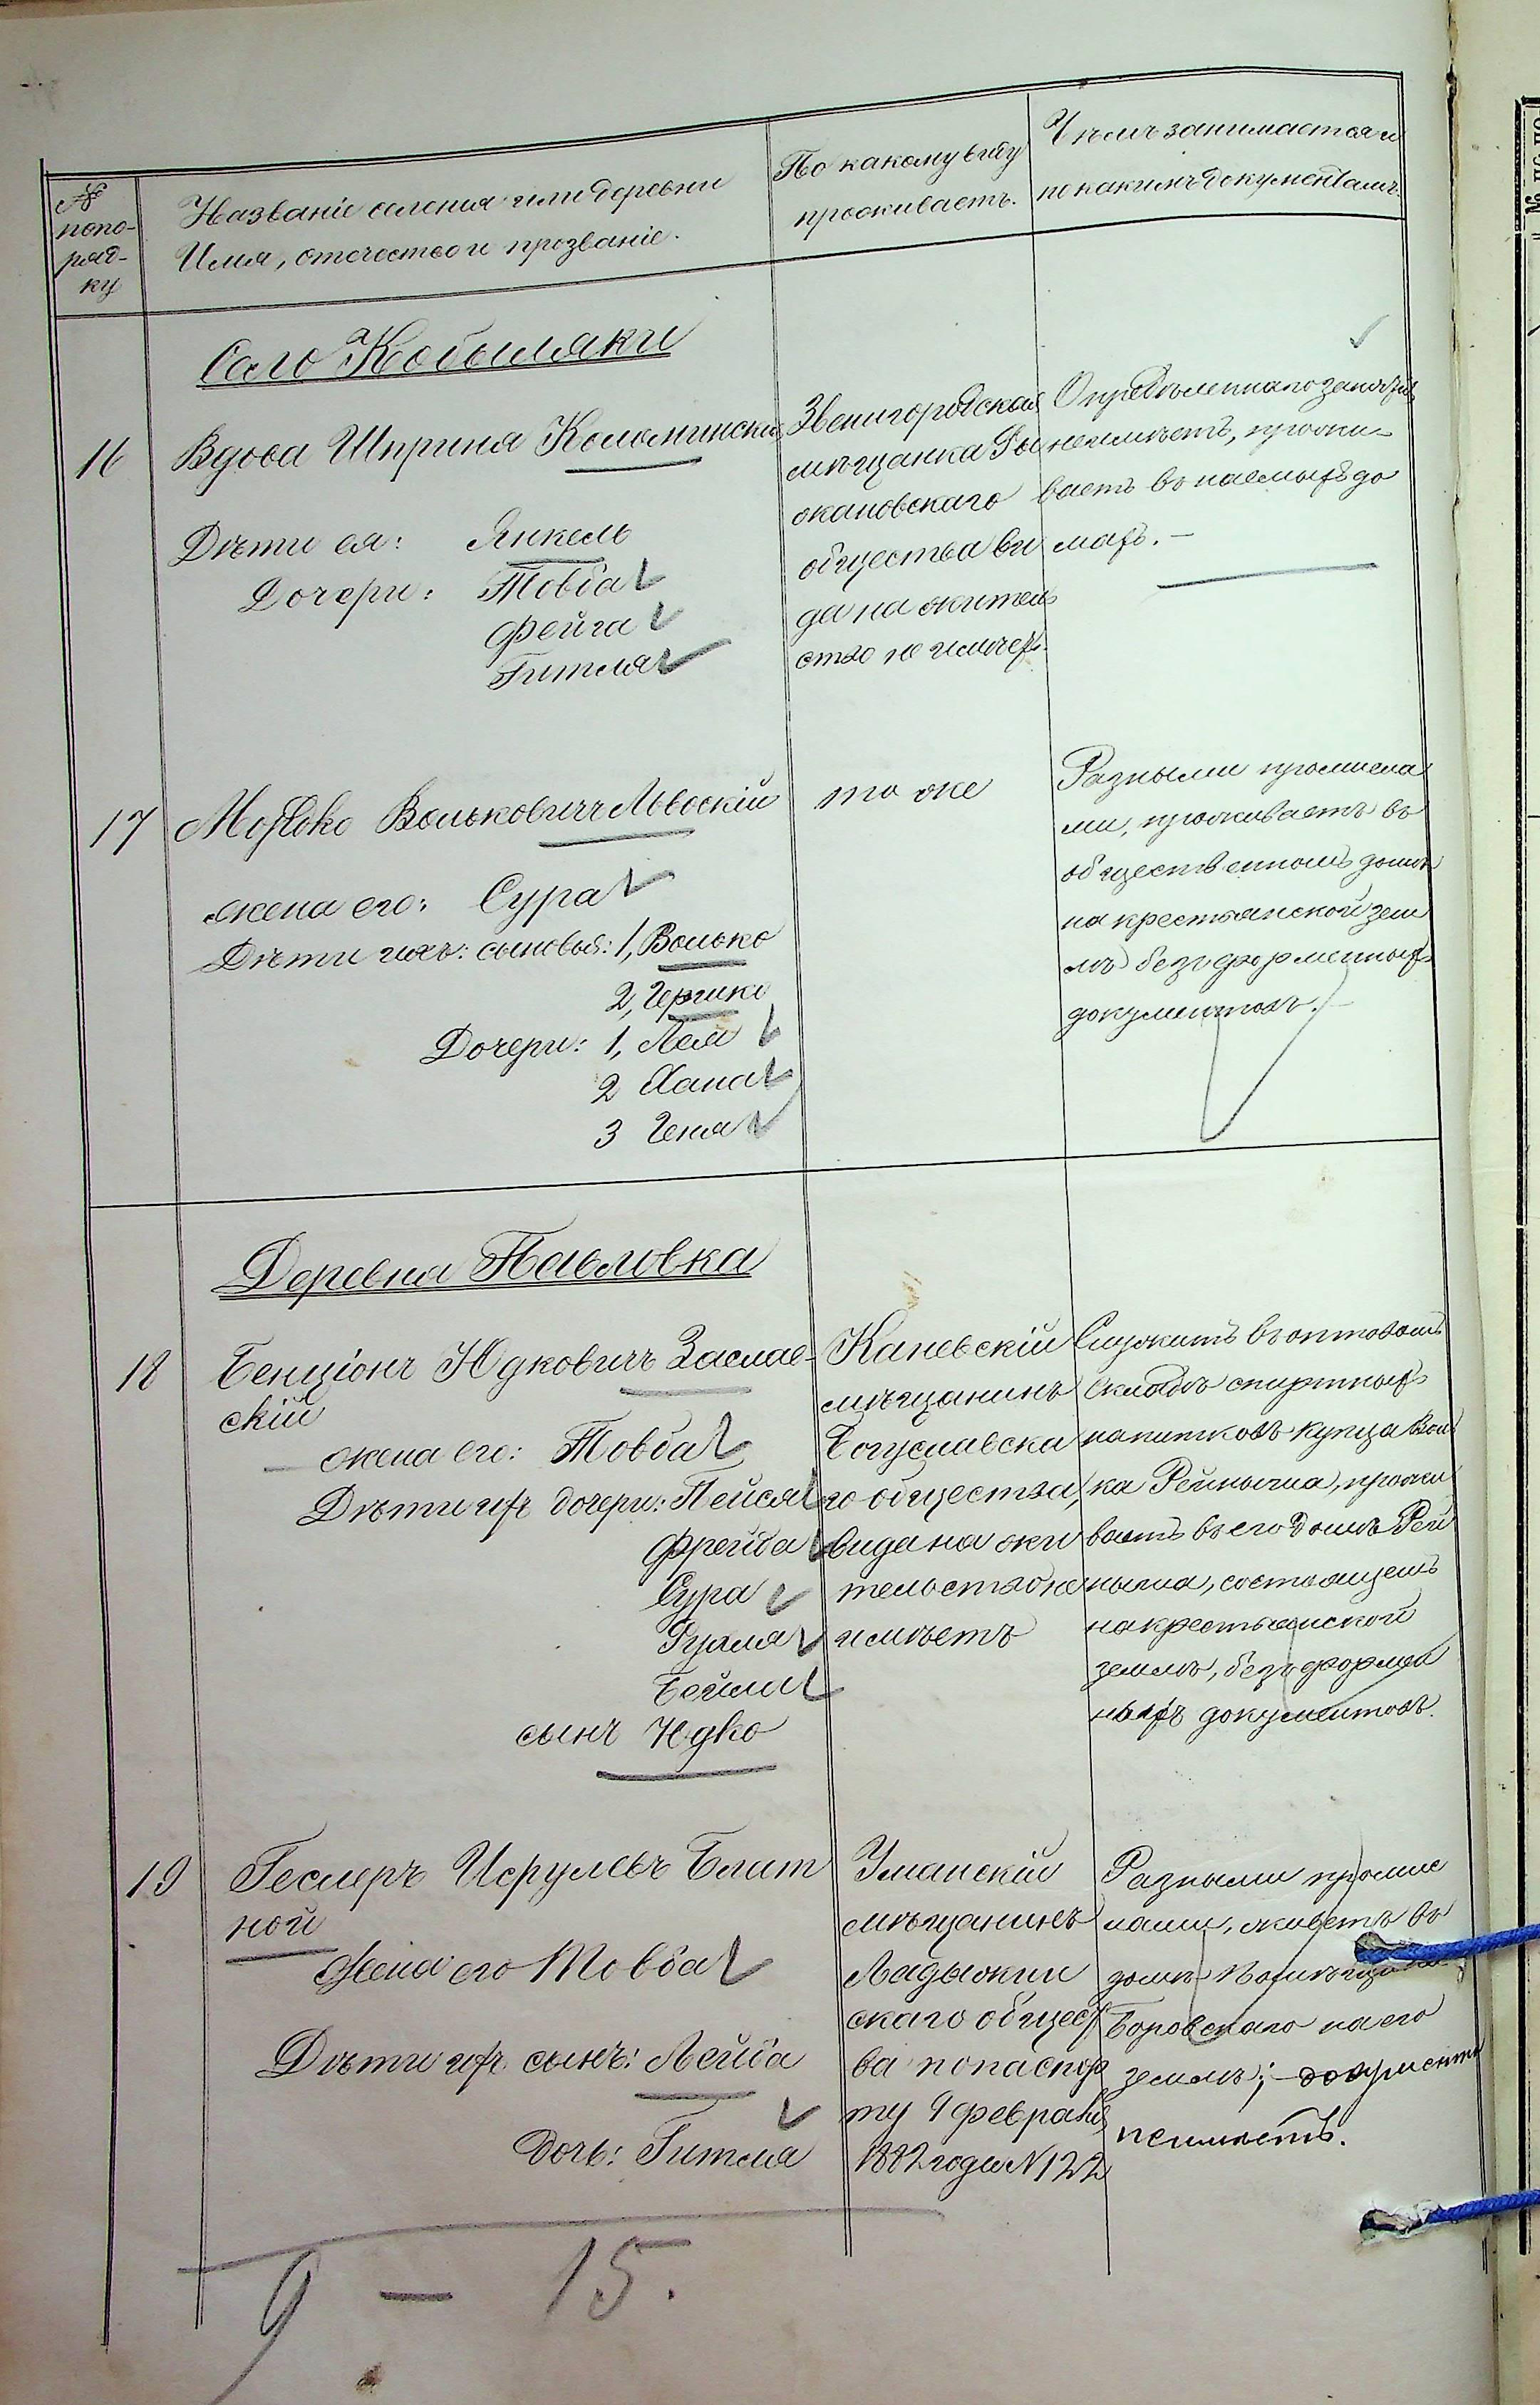 №
попо-
ряд-
ку
Названіе селенія или деревни
Имя, отечество и прозваніе.
По какому виду
проживаетъ.
Чѣмъ занимается и
по какимъ документамъ.
Село Кобыляки
16
Вдова Шприня Коломинская
Дѣти ея: Янкель
Дочери: Товба
Фейга
Гитля
Звенигородская
мѣщанка Ры
жановскаго
общества ви
да на житель
ство не имѣетъ.
Опредѣленнаго занятія
не имѣетъ, прожи-
ваетъ въ наемныхъ до
махъ. –
17
Мошко Вольковичъ Львоскій
жена его: Сура
Дѣти ихъ: сыновья: 1, Волько
2, Гершко
Дочери: 1, Лея
2 Хана
3 Геня
то же
Разными промысла
ми, проживаетъ въ
общественномъ домѣ
на крестьянской зем
лѣ безъ форменныхъ
документовъ. –
Деревня Павловка
18
Бенціонъ Юдковичъ Заслав-
скій
жена его: Товба
Дѣти ихъ дочери: Пейся
Фрейда
Сура
Рухля
Бейла
сынъ Юдко
Каневскій
мѣщанинъ
Богуславска
го общества,
вида на жи
тельство не
имѣетъ
Служитъ въ оптовомъ
складѣ спиртныхъ
напитковъ купца Воль
ка , прожи
ваетъ въ его домѣ
состоящемъ
на крестьянской
землѣ, безъ формен
ныхъ документовъ.
19
Геслеръ Исрулевъ Блит
ной
Жена его Товба
Дѣти ихъ сынъ: Лейба
дочь: Гитля
Уманскій
мѣщанинъ
Ладыжин
скаго общест
ва по паспор
ту 9 февраля
1882 года N 122
Разными промыс
лами, живетъ въ
домѣ помѣщика
Боровскаго на его
землѣ; – документа
не имѣетъ.
9 – 15.